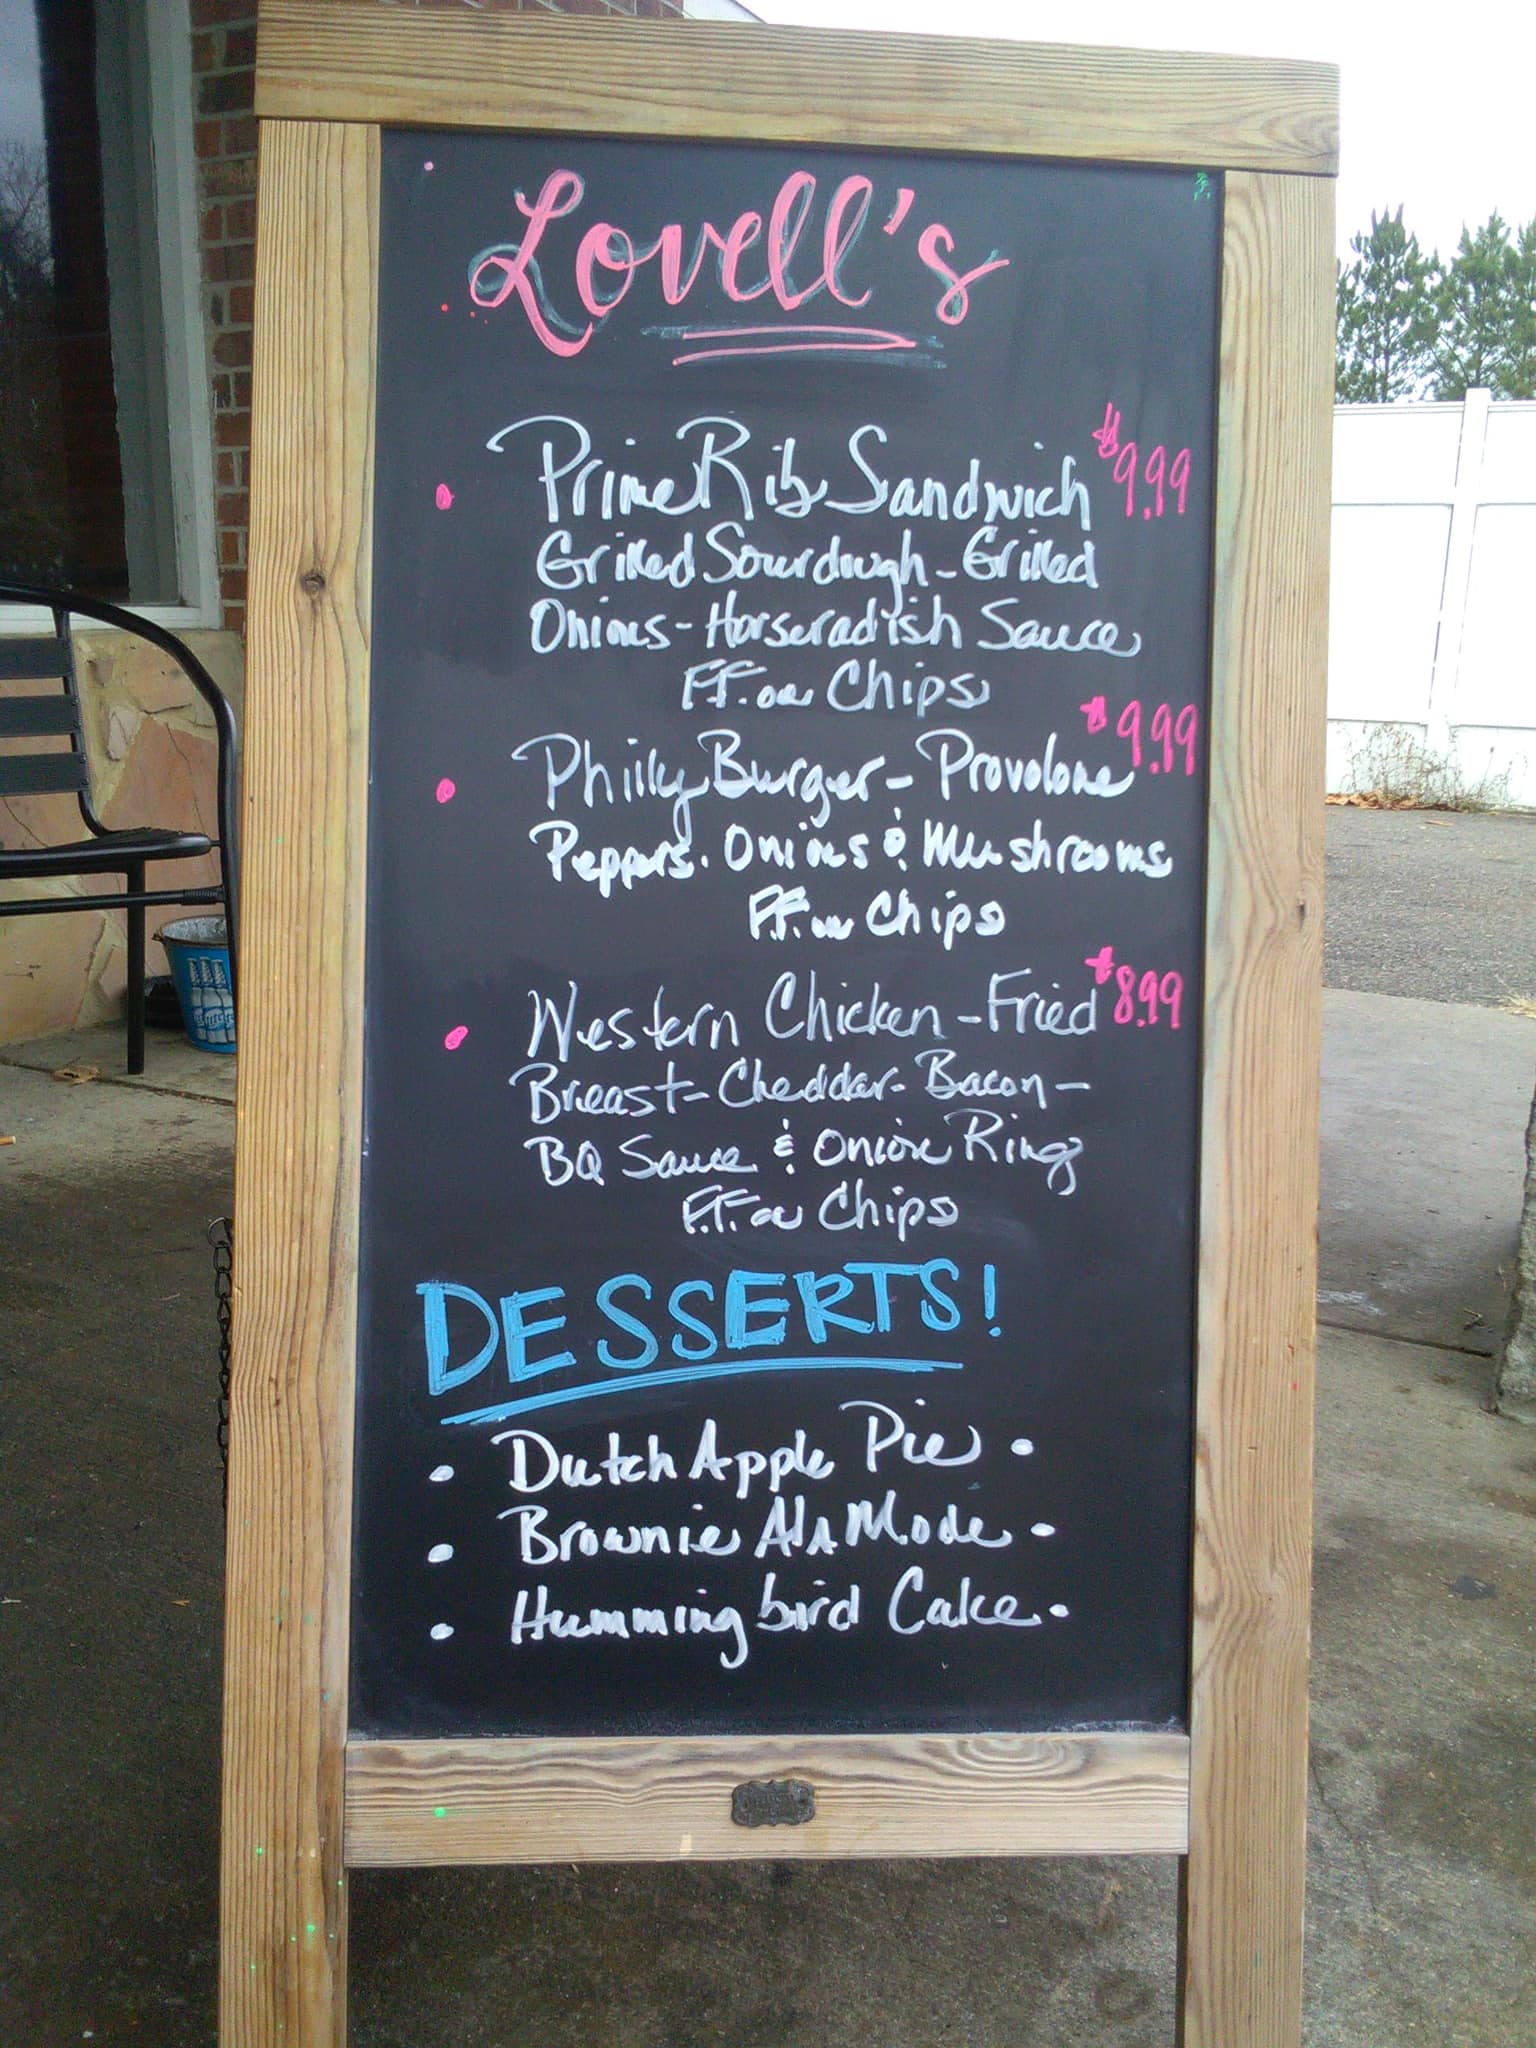 Lovell's
Prime Rib Sandwich $9.99
Grilled Sourdough - Grilled
Onions - Horseradish Sauce
F.F. or Chips
Philly Burger - Provolone $9.99
Peppers. Onions & Mushrooms
F.F. or Chips
Western Chicken - Fried $8.99
Breast - Cheddar - Bacon -
BQ Sauce & Onion Ring
F.F. or Chips
DESSERTS!
• Dutch Apple Pie •
• Brownie Ala Mode •
• Hummingbird Cake •